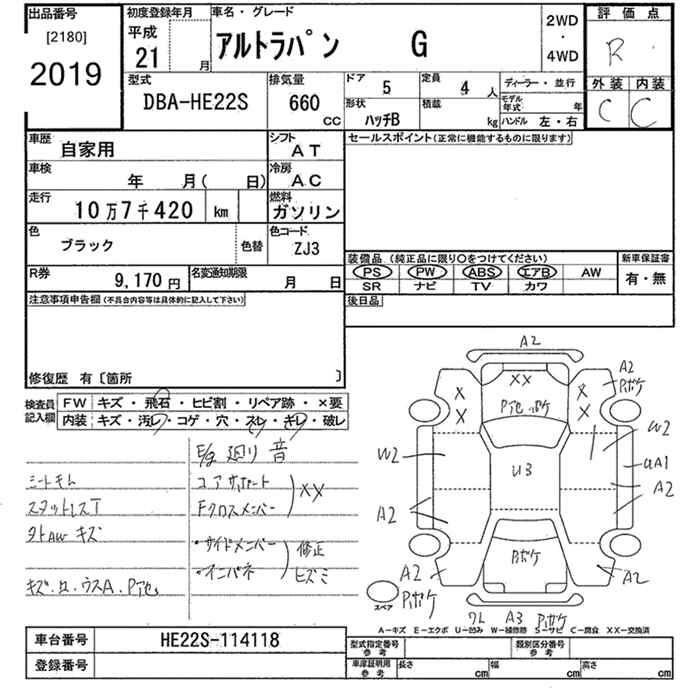 出品番号 初度登録年月 車名・グレード 2WD・4WD 評価点
[2180] 平成 アルトラパン G R
2019 21 月
型式 排気量 ドア 5 定員 4 人 ディーラー・並行 外装 内装
DBA-HE22S 660 CC 形状 ハッチB 積載 kg モデル年式 年 C C
ハンドル 左・右
車歴 自家用 シフト AT セールスポイント(正常に機能するものに限ります)
車検 年 月( 日) 冷房 AC
走行 10万7千420 km 燃料 ガソリン
色 ブラック 色替 色コード ZJ3
装備品 (純正品に限り○をつけてください) 新車保証書
R券 9,170円 名変通知期限 月 日 PS PW ABS エアB AW 有・無
SR ナビ TV カワ
注意事項申告欄(不具合内容等は具体的に記入して下さい) 後日品
修復歴 有〔箇所 〕
検査員記入欄 FW キズ・飛石・ヒビ割・リペア跡・×要
内装 キズ・汚レ・コゲ・穴・スレ・キレ・破レ
E/g 廻り 音
シートモム コアサポート
スタットレスT Fクロスメンバー XX
タトAW キズ
・サイドメンバー 修正
・インパネ ヒズミ
キズ.ロ.ウスA.
A2
XX
X X X X
A2 Pボケ
W2 W2
U3 UA1
A2 A2
Pボケ
A2 Pボケ A2
スペア
A3 Pボケ
A-キズ E-エクボ U-凹み W-補修跡 S-サビ C-腐食 XX-交換済
車台番号 HE22S-114118 型式指定番号 参考 類別区分番号 参考
登録番号 車庫証明用 参考 長さ cm 幅 cm 高さ cm